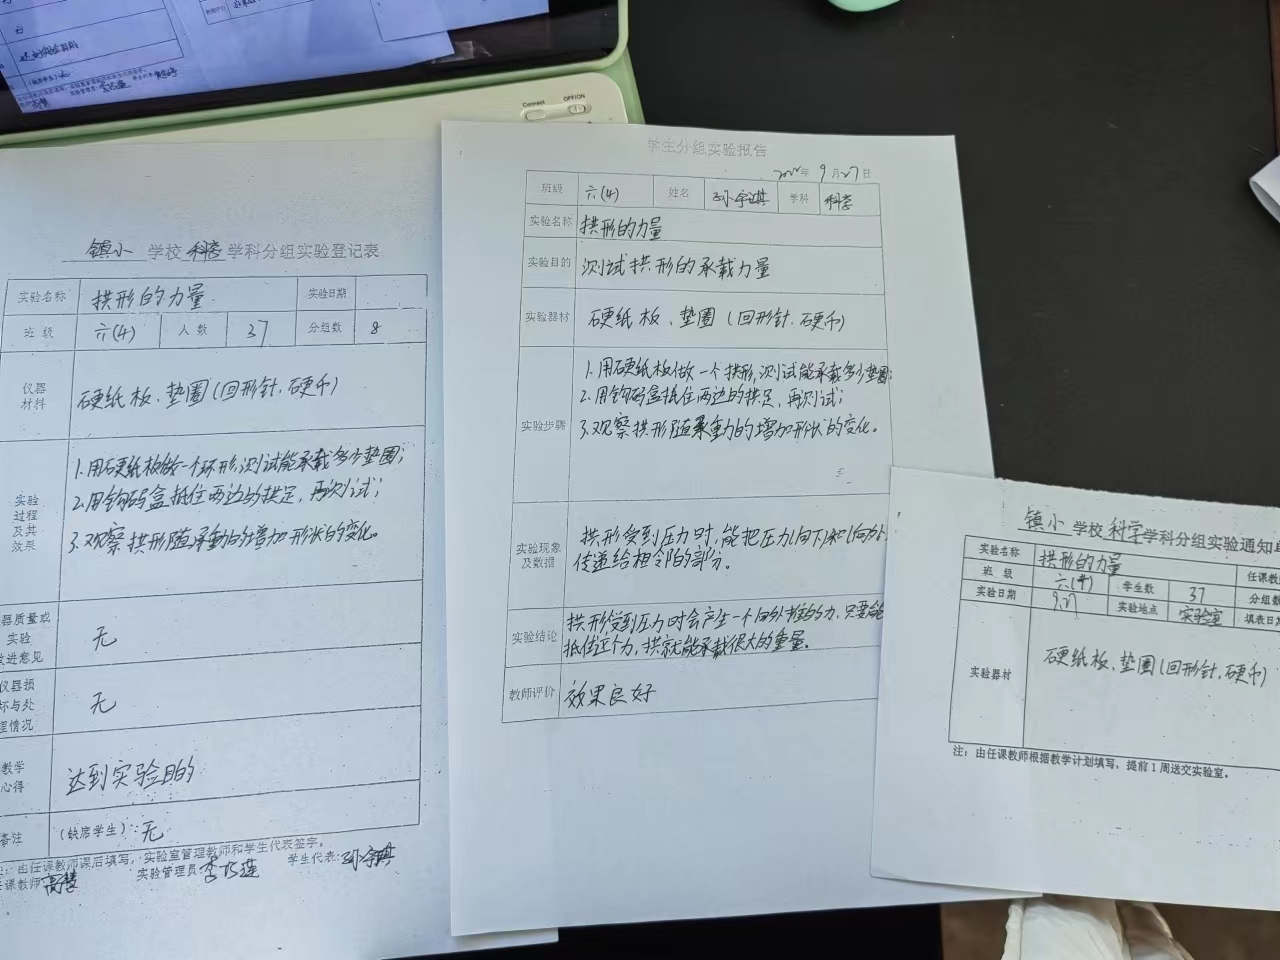 Connect
OFF/ON
镇小 学校 科学 学科分组实验登记表
实验名称 拱形的力量 实验日期
班 级 六(4) 人 数 37 分组数 8
仪器
材料
硬纸板、垫圈(回形针、硬币)
实验
过程
及其
效果
1.用硬纸板做一个环形,测试能承载多少垫圈;
2.用钩码盒抵住两边的拱足,再测试;
3.观察拱形随承重的增加形状的变化。
器质量或
实验
改进意见
无
仪器损
坏与处
理情况
无
教学
心得
达到实验目的
备注 (缺席学生):无
注:由任课教师课后填写,实验室管理教师和学生代表签字。
任课教师 高慧 实验管理员:李巧莲 学生代表:孙宇淇
学生分组实验报告
2022年 9月27日
班级 六(4) 姓名 孙宇淇 学科 科学
实验名称 拱形的力量
实验目的 测试拱形的承载力量
实验器材 硬纸板、垫圈(回形针、硬币)
实验步骤
1.用硬纸板做一个拱形,测试能承载多少垫圈;
2.用钩码盒抵住两边的拱足,再测试;
3.观察拱形随承重的增加形状的变化。
实验现象
及数据
拱形受到压力时,能把压力向下和向外
传递给相邻的部分。
实验结论
拱形受到压力时会产生一个向外推的力,只要能
抵住这个力,拱就能承载很大的重量。
教师评价 效果良好
镇小 学校 科学 学科分组实验通知单
实验名称 拱形的力量 任课教
班 级 六(4) 学生数 37 分组数
实验日期 9.27 实验地点 实验室 填表日
实验器材 硬纸板、垫圈(回形针、硬币)
注:由任课教师根据教学计划填写,提前1周送交实验室。